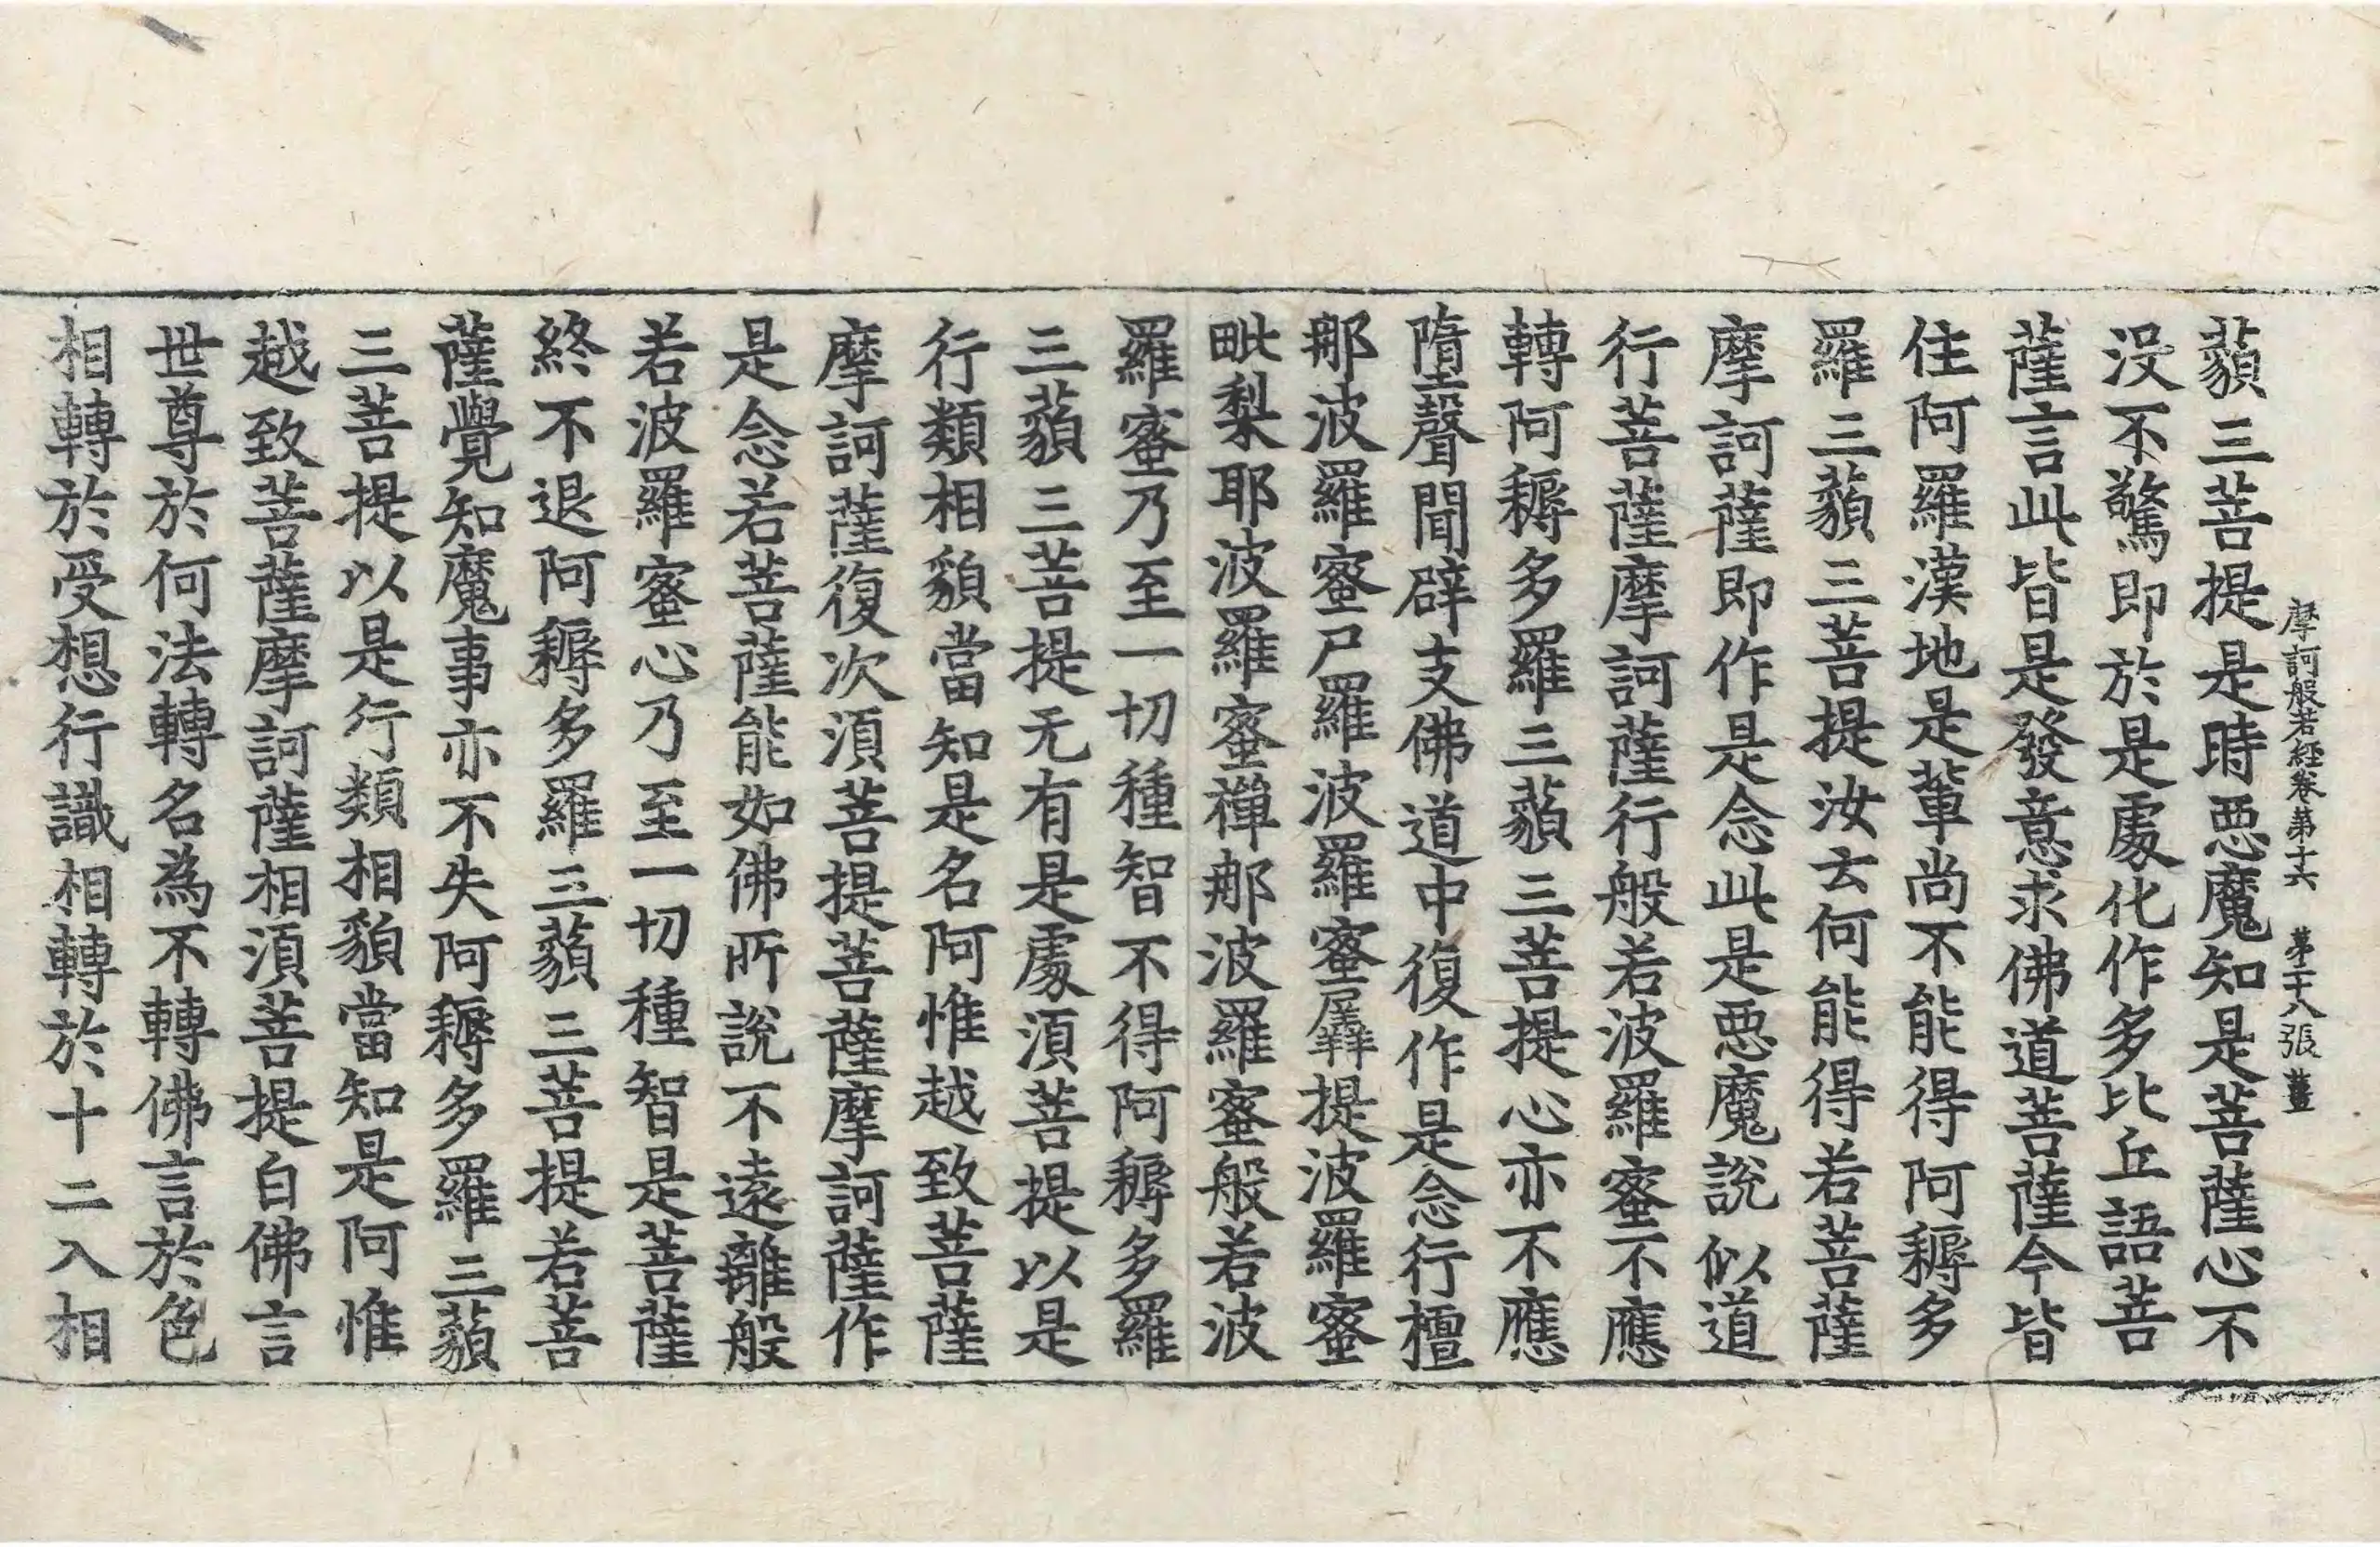 摩訶般若經卷第十六 第二十八張 薑
藐三菩提是時惡魔知是菩薩心不
沒不驚即於是處化作多比丘語菩
薩言此皆是發意求佛道菩薩今皆
住阿羅漢地是輩尚不能得阿耨多
羅三藐三菩提汝云何能得若菩薩
摩訶薩即作是念此是惡魔說似道
行菩薩摩訶薩行般若波羅蜜不應
轉阿耨多羅三藐三菩提心亦不應
墮聲聞辟支佛道中復作是念行檀
那波羅蜜尸羅波羅蜜羼提波羅蜜
毗梨耶波羅蜜禪那波羅蜜般若波
羅蜜乃至一切種智不得阿耨多羅
三藐三菩提无有是處湏菩提以是
行類相貌當知是名阿惟越致菩薩
摩訶薩復次湏菩提菩薩摩訶薩作
是念若菩薩能如佛所說不遠離般
若波羅蜜心乃至一切種智是菩薩
終不退阿耨多羅三藐三菩提若菩
薩覺知魔事亦不失阿耨多羅三藐
三菩提以是行類相貌當知是阿惟
越致菩薩摩訶薩相湏菩提白佛言
世尊於何法轉名為不轉佛言於色
相轉於受想行識相轉於十二入相